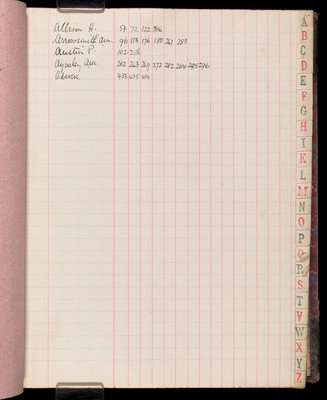 Allison H. 57 72 122 206
Arrowsmith Ann. 96 113 176 180 261 293
Austin P. 102
Apseley Ann. 262 263 269 272 282 284 295 296
433 435 404
A
B
C
D
E
F
G
H
I
K
L
M
N
O
P
Q
R
S
T
V
W
X
Y
Z